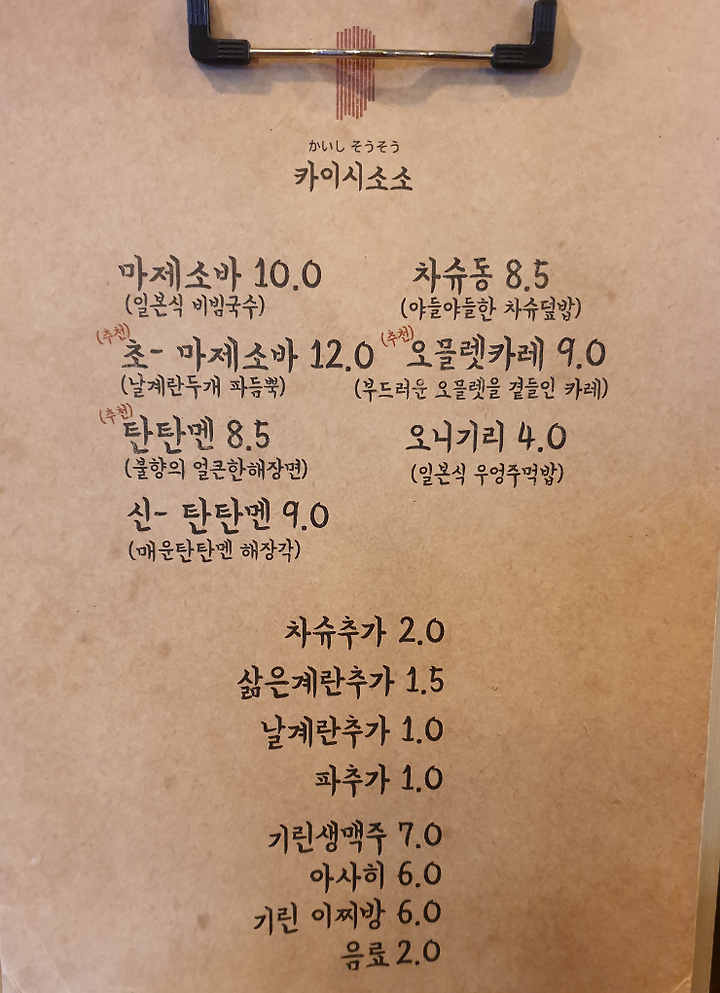 かいし そうそう
카이시소소
마제소바 10.0
(일본식 비빔국수)
(추천)
초- 마제소바 12.0
(날계란두개 파듬뿍)
(추천)
탄탄멘 8.5
(불향의 얼큰한해장면)
신- 탄탄멘 9.0
(매운탄탄멘 해장각)
차슈동 8.5
(야들야들한 차슈덮밥)
(추천)
오믈렛카레 9.0
(부드러운 오믈렛을 곁들인 카레)
오니기리 4.0
(일본식 우엉주먹밥)
차슈추가 2.0
삶은계란추가 1.5
날계란추가 1.0
파추가 1.0
기린생맥주 7.0
아사히 6.0
기린 이찌방 6.0
음료 2.0